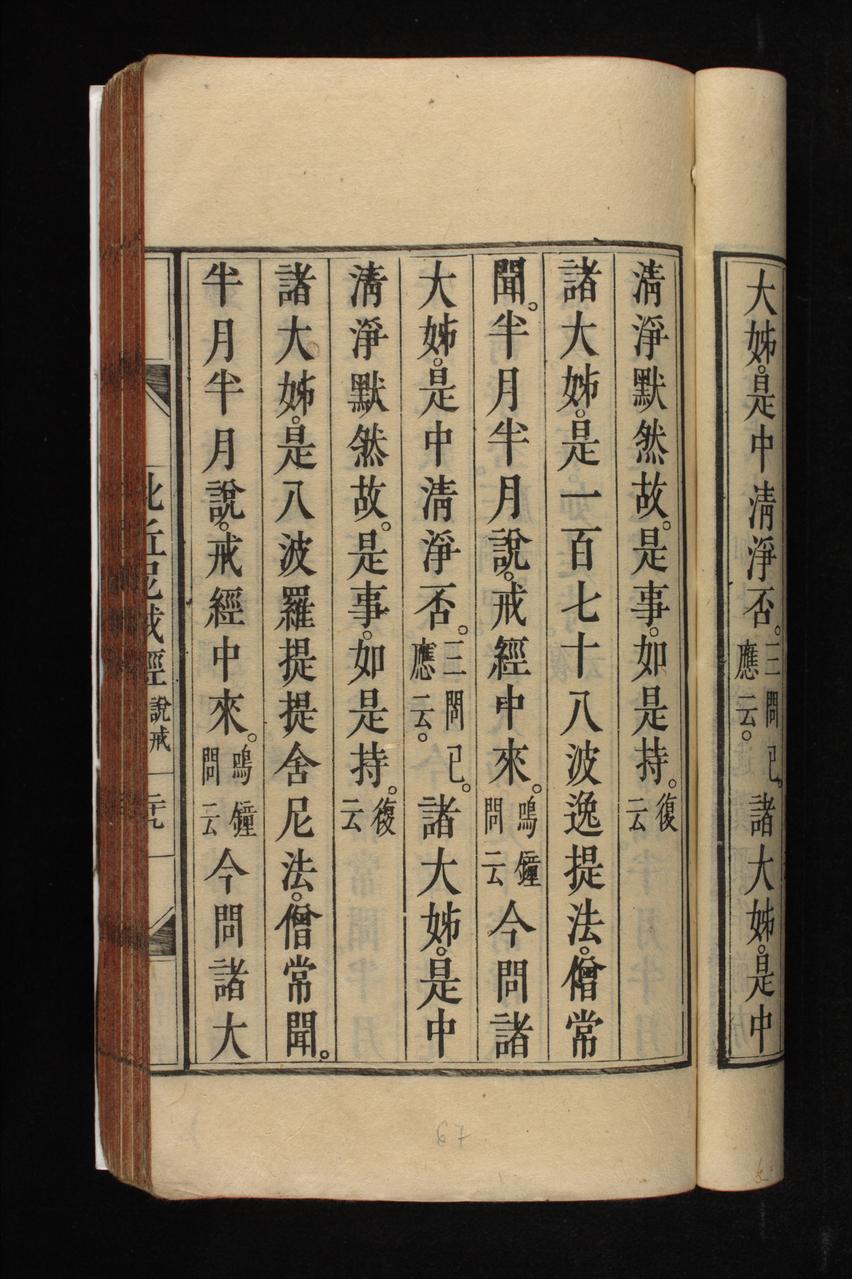 大姊。是中清淨否。三問已。應云。諸大姊。是中
清淨默然故。是事。如是持。復云
諸大姊。是一百七十八波逸提法。僧常
聞。半月半月說。戒經中來。鳴鐘問云今問諸
大姊。是中清淨否。三問已。應云。諸大姊。是中
清淨默然故。是事。如是持。復云
諸大姊。是八波羅提提舍尼法。僧常聞。
半月半月說。戒經中來。鳴鐘問云今問諸大
比丘尼戒經 說戒